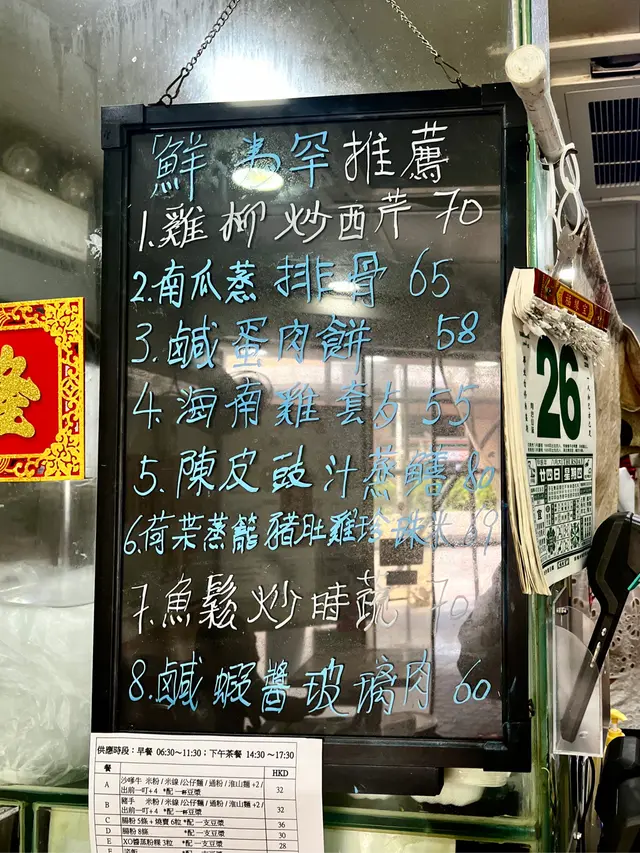 「鮮為罕推薦
1.雞柳炒西芹 70
2.南瓜蒸排骨 65
3.鹹蛋肉餅 58
4.海南雞套夕 55
5.陳皮豉汁蒸鱔 80
6.荷葉蒸籠豬肚雞珍珠米 69
7.魚鬆炒時蔬 70
8.鹹蝦醬玻璃肉 60
隆
26
廿四日 星期四
供應時段:早餐 06:30~11:30;下午茶餐 14:30~17:30
餐 HKD
A 沙嗲牛 米粉/米線/公仔麵/通粉/淮山麵+2/
出前一叮+4 *配一杯豆漿 32
B 豬手 米粉/米線/公仔麵/通粉/淮山麵+2/
出前一叮+4 *配一杯豆漿 32
C 腸粉5條+燒賣6粒 *配一支豆漿 36
D 腸粉8條 *配一支豆漿 30
E XO醬蒸粉粿3粒 *配一支豆漿 28